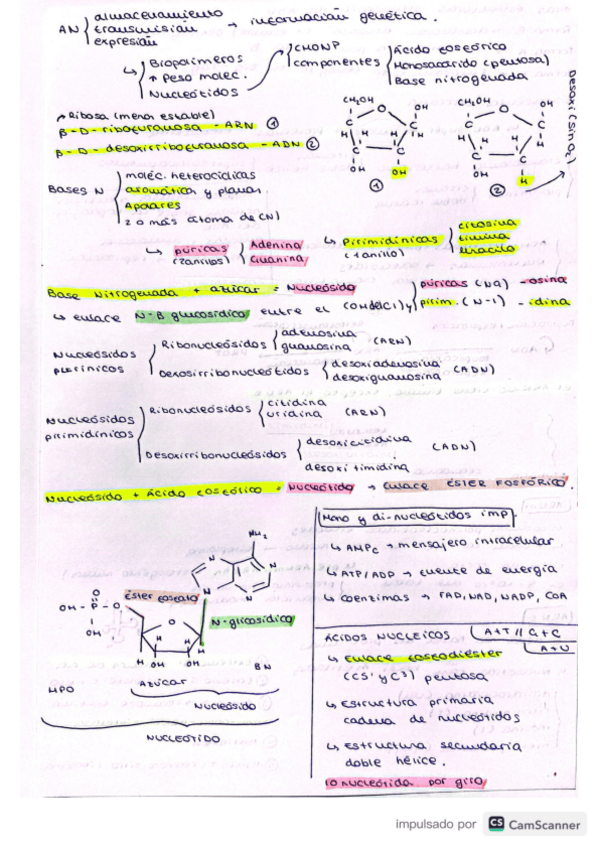 AN { almacenamiento
transmisión → información genética.
expresión
↳ Biopolímeros
↑ Peso molec.
Nucleótidos
CHONP
componentes { Ácido fosfórico
Monosacárido (pentosa)
Base nitrogenada
Ribosa (menos estable)
β-D-ribofuranosa - ARN ①
β-D-desoxirribofuranosa - ADN ②
CH2OH O OH
C C
H H H H
C C
OH OH
①
CH2OH O OH
C C
H H H H
C C
OH H
②
Desoxi (sin O2)
BASES N { moléc. heterocíclicas
aromática y planas.
Apolares
2 o más átomos de (N)
↳ púricas { Adenina
(2 anillos) Guanina
↳ Pirimidínicas { citosina
(1 anillo) timina
uracilo
Base Nitrogenada + azúcar = Nucleósido
↳ enlace N-β glucosídico entre el (OH del C1) y { púricas (N9) - osina
pirim. (N-1) - idina
Nucleósidos { Ribonucleósidos { adenosina (ARN)
púrinicos guanosina
Desoxirribonucleótidos { desoxiadenosina (ADN)
desoxiguanosina
Nucleósidos { Ribonucleósidos { citidina (ARN)
pirimidínicos uridina
Desoxirribonucleósidos { desoxicitidina (ADN)
desoxi timidina
Nucleósido + Ácido fosfórico = Nucleótido → Enlace ÉSTER FOSFÓRICO.
Mono y di-nucleótidos imp.
↳ AMPc → mensajero intracelular
↳ ATP/ADP → fuente de energía
↳ coenzimas → FAD, NAD, NADP, CoA
NH2
N N
N N
éster fosfato
O
OH - P - O
OH
O
N-glicosídico
H H H H
OH OH
BN
Azúcar
HPO
Nucleósido
NUCLEÓTIDO
ÁCIDOS NUCLEICOS A+T // G+C
A+U
↳ Enlace fosfodiéster
(C5' y C3') pentosa
↳ Estructura primaria
cadena de nucleótidos
↳ Estructura secundaria
doble hélice.
10 nucleótidos por giro
impulsado por CS CamScanner